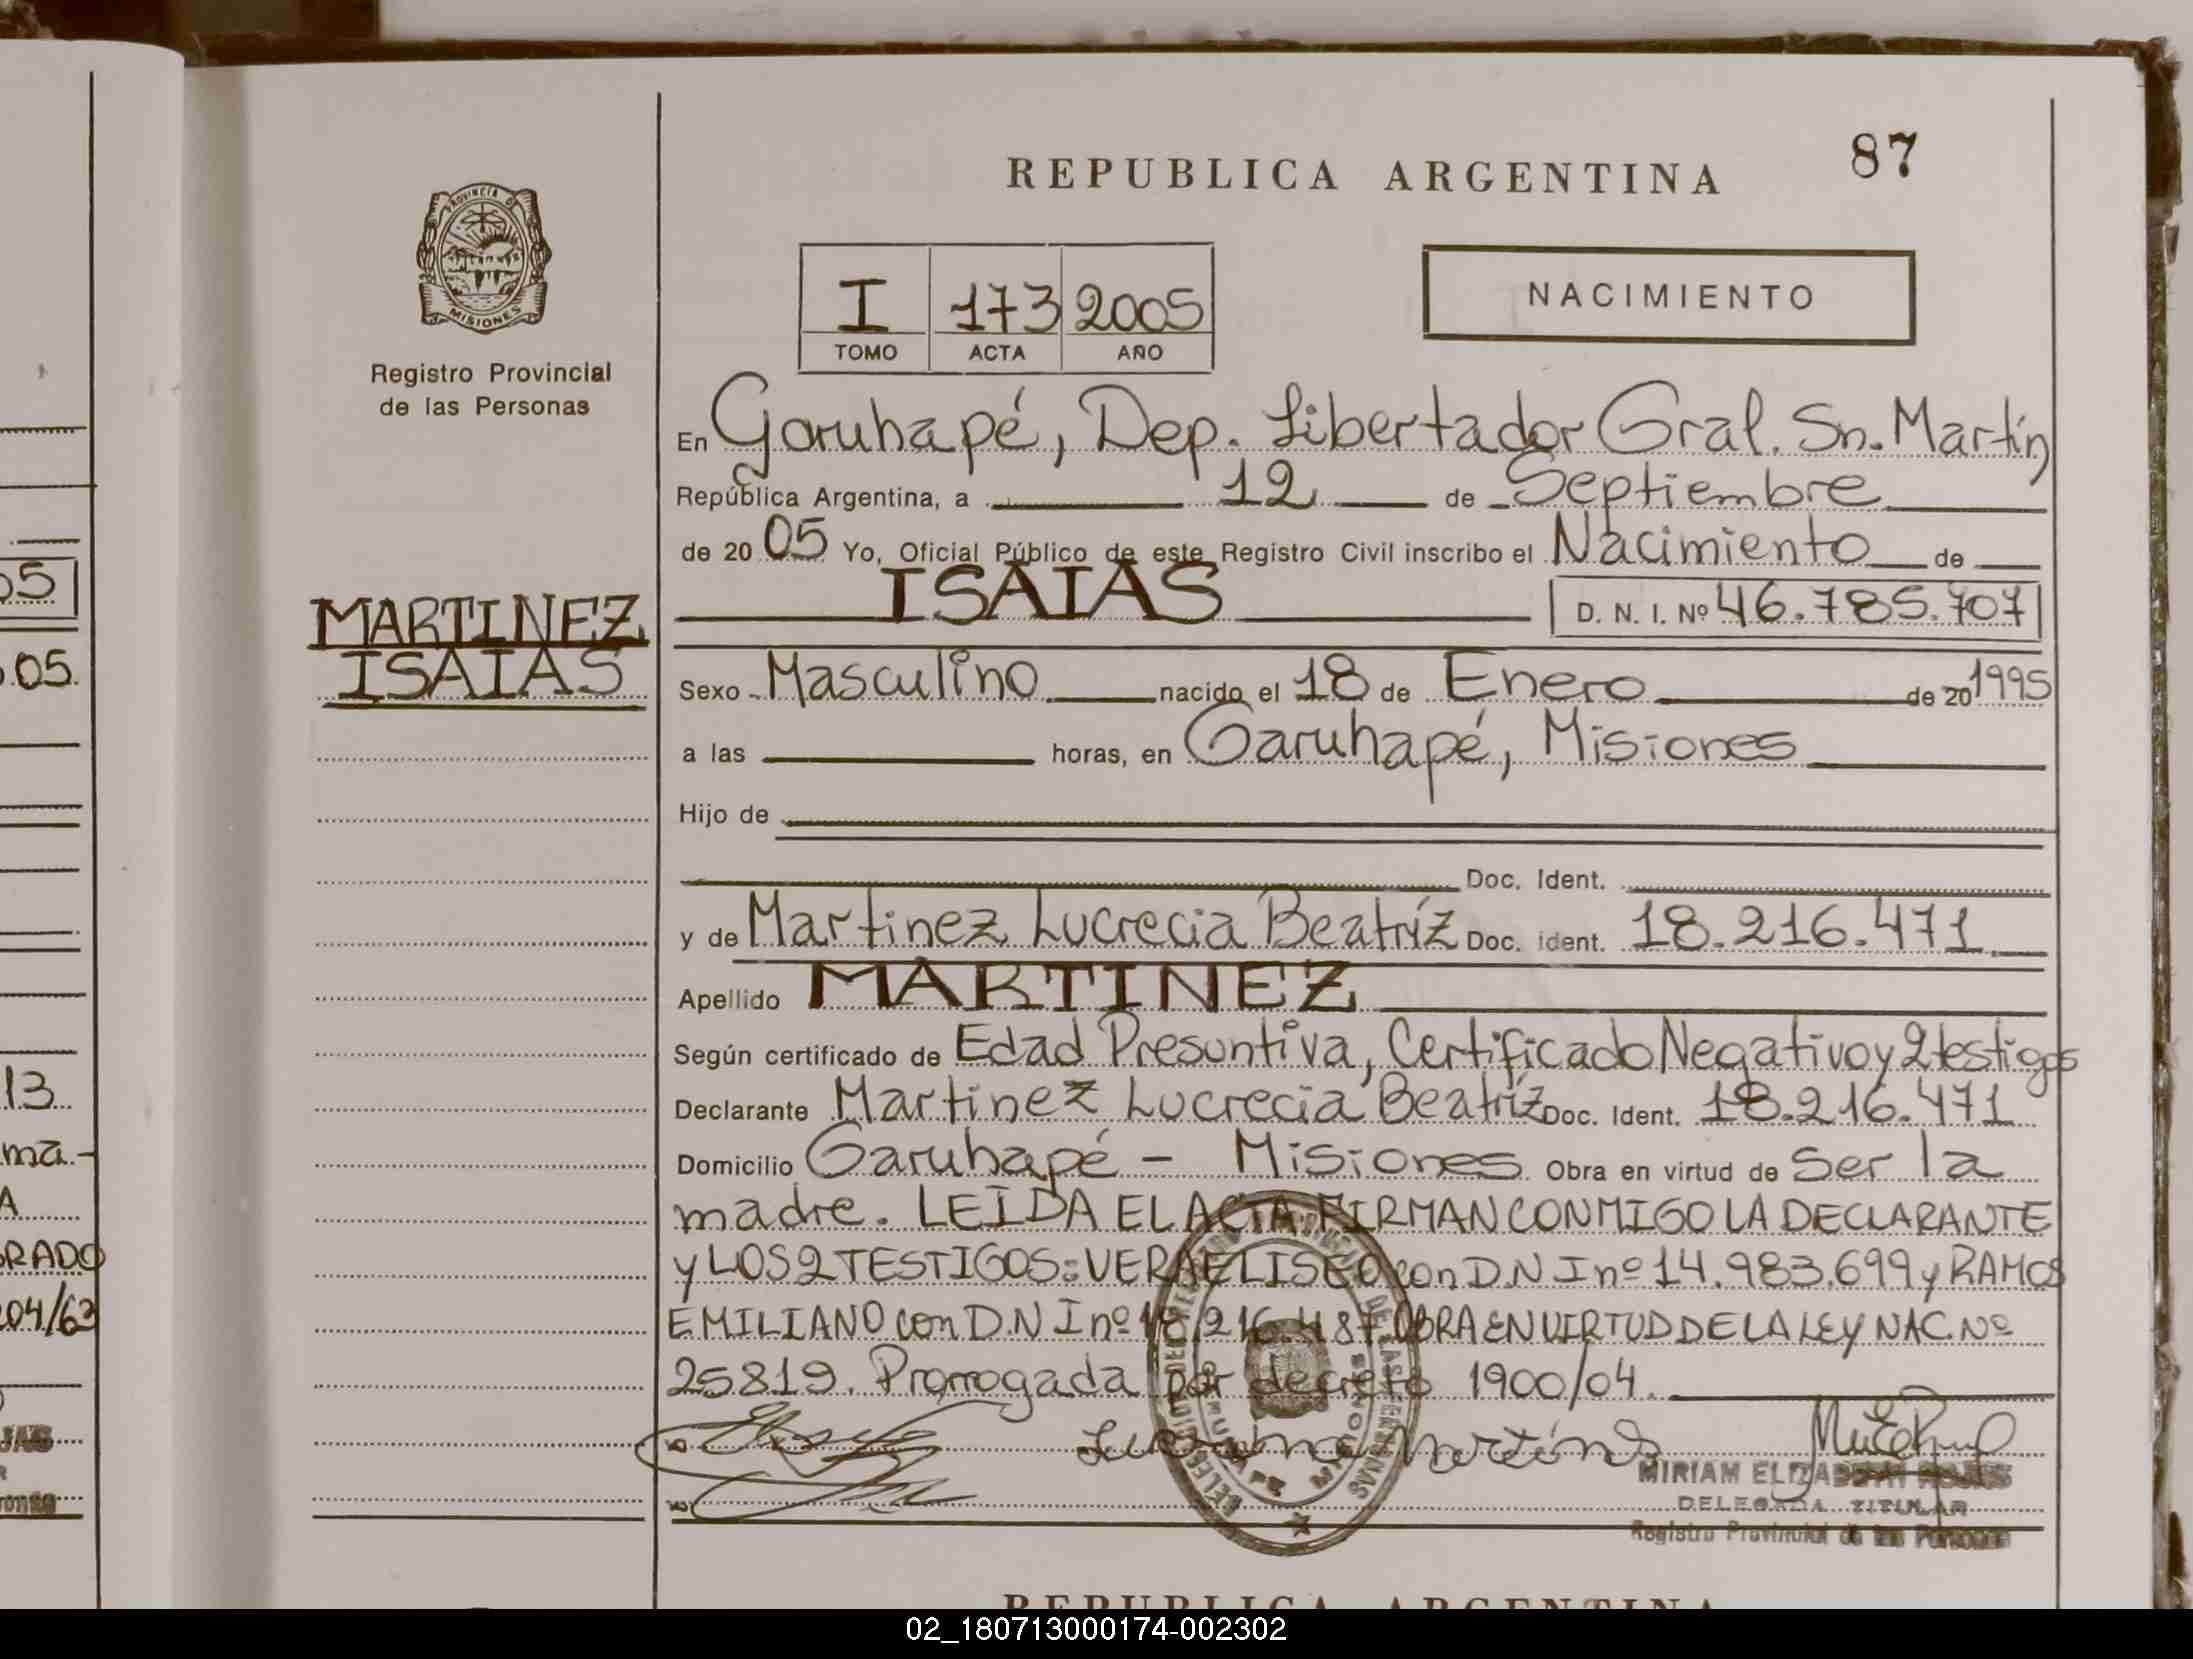 87
REPUBLICA ARGENTINA
PROVINCIA D
MISIONES
Registro Provincial
de las Personas
I 173 2005
TOMO ACTA AÑO
NACIMIENTO
En Garuhapé, Dep. Libertador Gral. Sn. Martín
República Argentina, a 12 de Septiembre
de 2005 Yo, Oficial Público de este Registro Civil inscribo el Nacimiento de
ISAIAS D. N. I. Nº 46.785.707
MARTINEZ
ISAIAS
Sexo Masculino nacido el 18 de Enero de 20 1995
a las horas, en Garuhapé, Misiones
Hijo de
Doc. Ident.
y de Martinez Lucrecia Beatríz Doc. ident. 18.216.471
Apellido MARTINEZ
Según certificado de Edad Presuntiva, Certificado Negativo y 2 testigos
Declarante Martinez Lucrecia Beatríz Doc. Ident. 18.216.471
Domicilio Garuhapé - Misiones Obra en virtud de Ser la
madre. LEIDA EL ACTA FIRMAN CONMIGO LA DECLARANTE
y LOS 2 TESTIGOS: VERA ELISEO con D.N I nº 14.983.699 y RAMOS
EMILIANO con D.N I nº 18.216.487 OBRA EN VIRTUD DE LA LEY NAC. Nº
25819. Prorrogada por decreto 1900/04.
MIRIAM ELIZABETH
DELEGADA TITULAR
Registro Provincial de las Personas
05
.05.
13
ma.-
A
RADO
204/63
REPUBLICA ARGENTINA
02_180713000174-002302